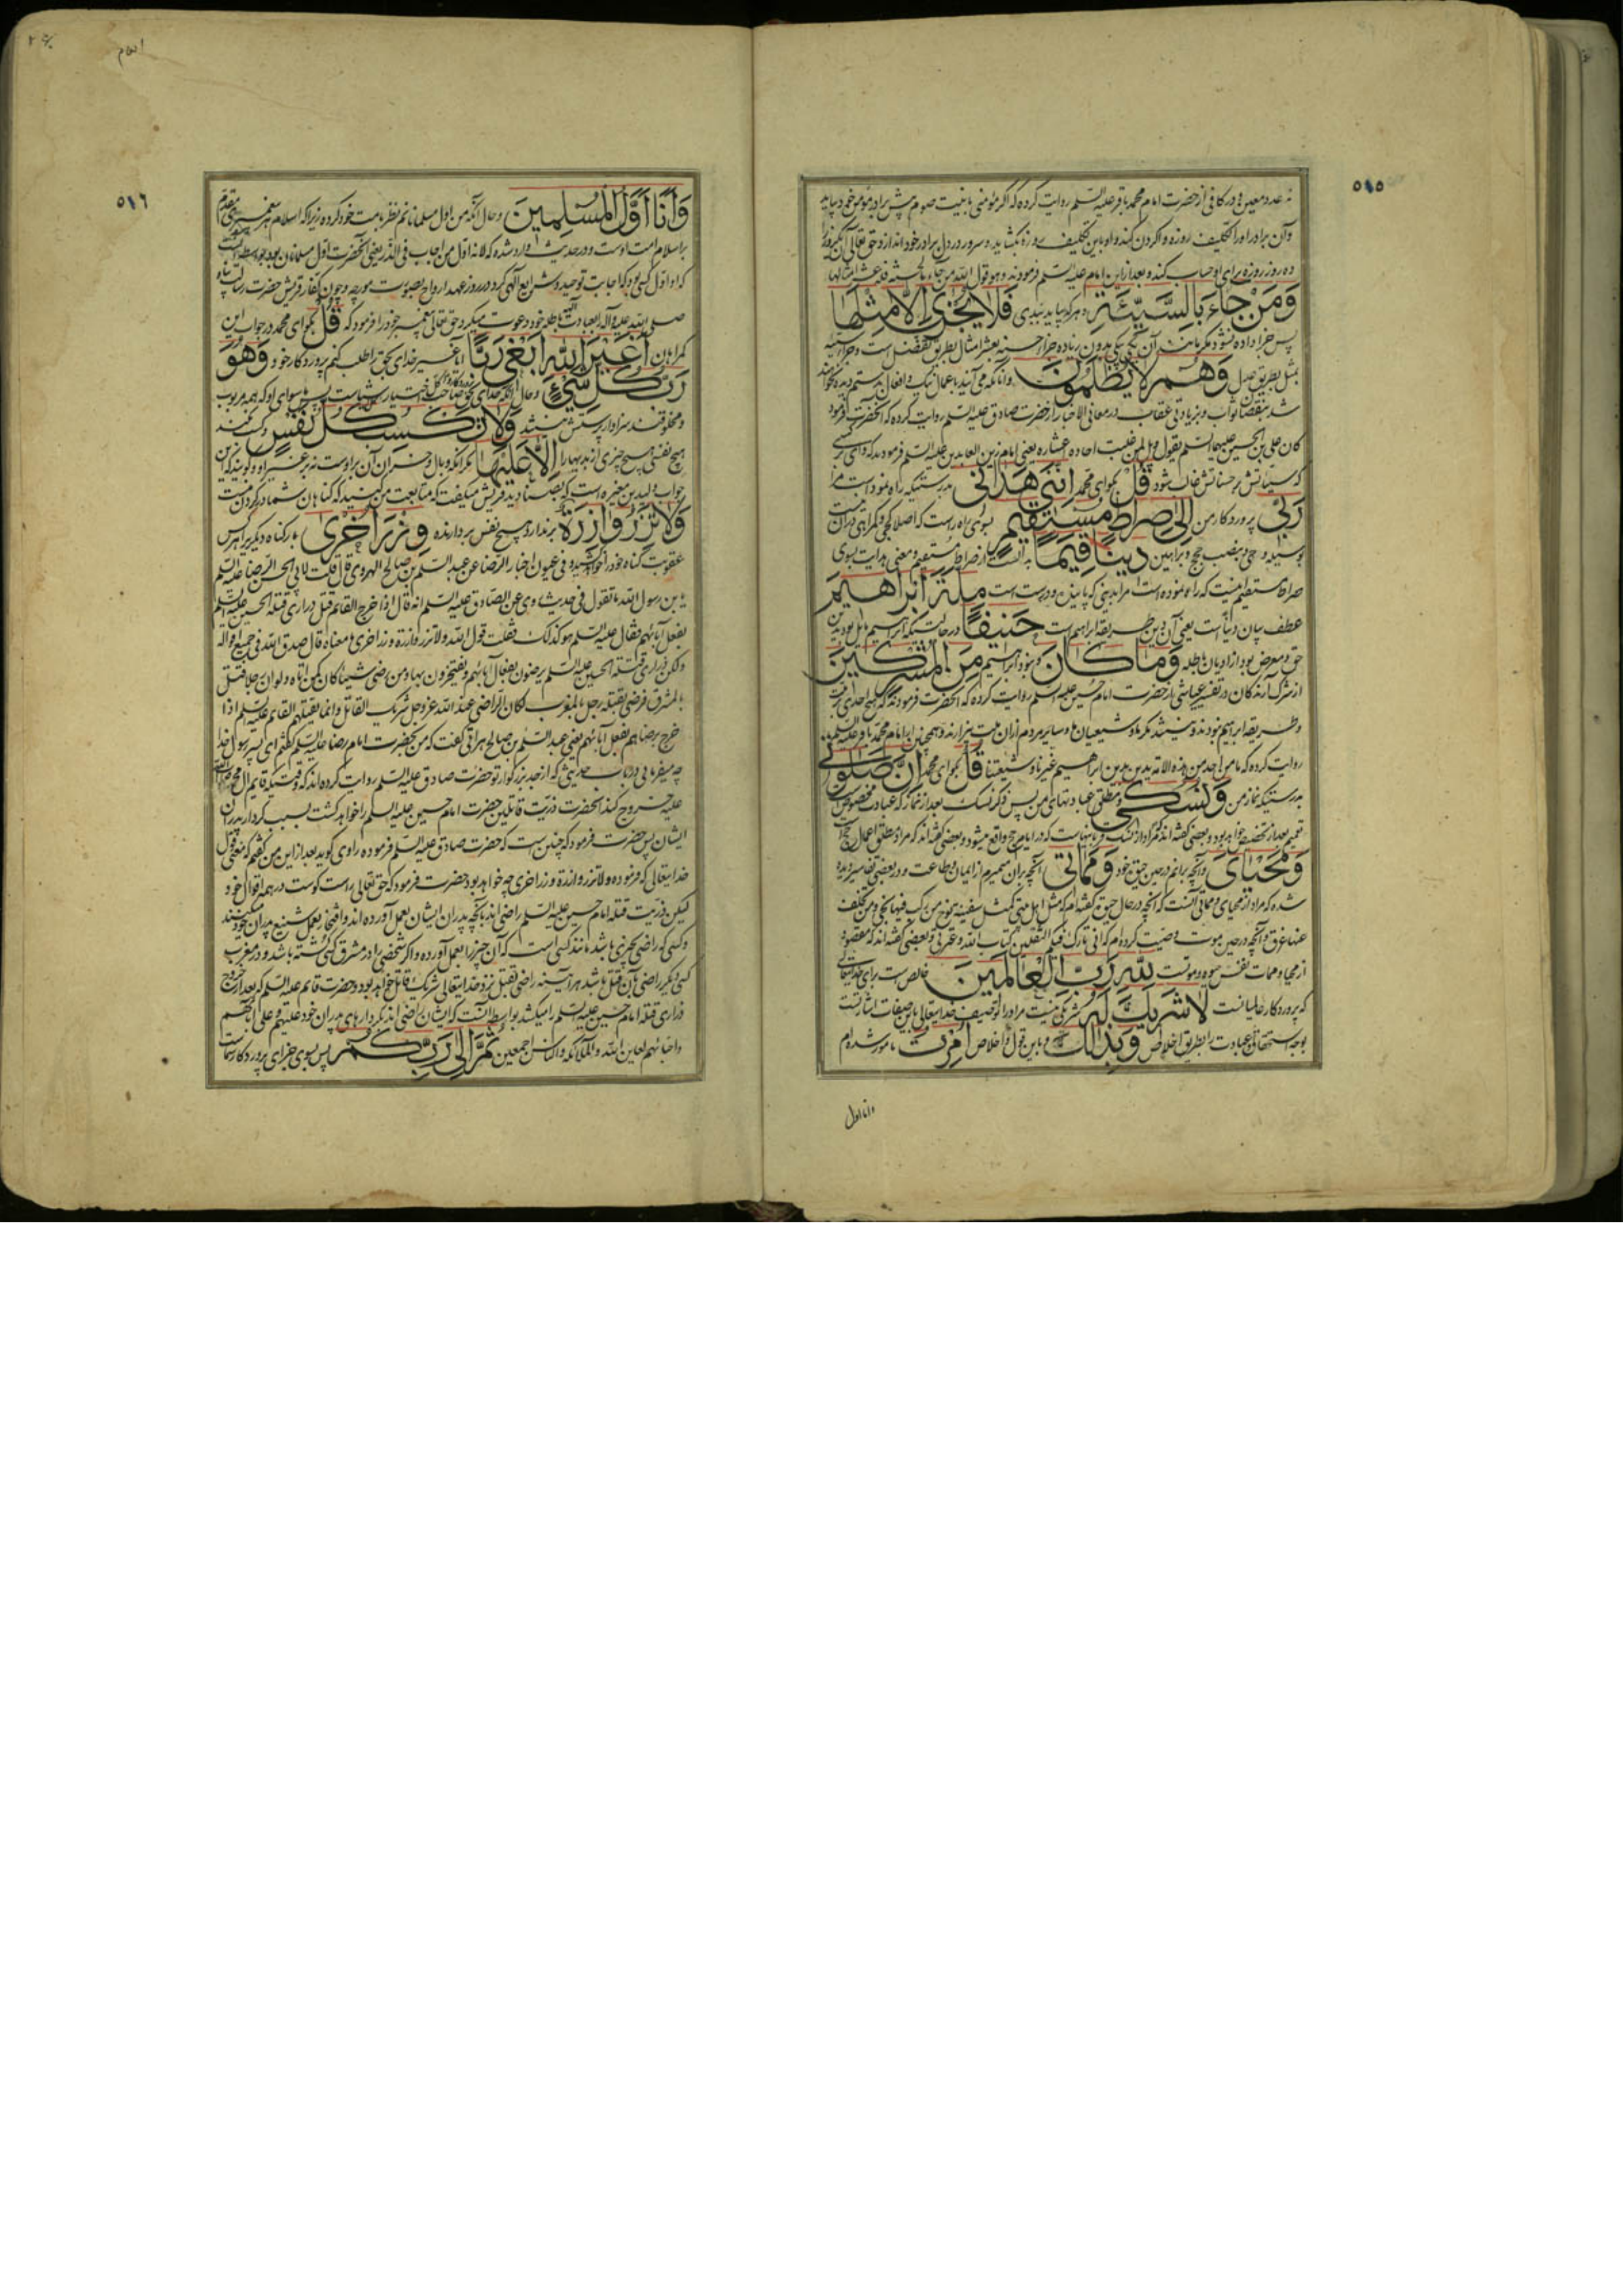 ٥١٥
نه عدد معین و در کافی از حضرت امام محمد باقر علیه السلم روایت کرده که اگر مؤمنی با نیت صوم پیش برادر مؤمن خود بیاید
وآن برادر او را تکلیف روزه واکردن کند و او باین تکلیف روزه بگشاید و سرور در دل برادر خود اندازد حق تعالی
ده روز روزه برای او حساب کند و بعد از این امام علیه السلم فرمودند وهو قول الله من جاء بالحسنة فله عشر امثالها
وَمَنْ جَاءَ بِالسَّيِّئَةِ و هر که بیاید ببدی فَلَا يُجْزَى إِلَّا مِثْلَهَا
پس جزا داده نشود مگر مانند آن یکی بیکی بدون زیاده جزاء حسنه بعشر امثال بطریق تفضل است و جزاء سیئه
بمثل بطریق عدل وَهُمْ لَا يُظْلَمُونَ و آنانکه می آیند باعمال نیک و افعال بد ستم دیده نخواهند
شد بنقصان ثواب و بزیادتی عقاب در معانی الاخبار از حضرت صادق علیه السلم روایت کرده که آنحضرت فرمود
کان علی بن الحسین علیهما السلم یقول ویل لمن غلبت احاده عشاره یعنی امام زین العابدین علیه السلم فرمودند که وای بر کسی
که سیئاتش بر حسناتش غالب شود قُلْ بگو ای محمد إِنَّنِي هَدَانِي بدرستیکه راه نمود است مرا
رَبِّي پروردکار من إِلَى صِرَاطٍ مُسْتَقِيمٍ بسوی راه راست که اصلا کجی و کمراهی در آن نیست
بوسیله وحی و بنصب حجج و براهین دِينًا قِيَمًا بدل است از صراط مستقیم و معنی هدایت بسوی
صراط مستقیم اینست که راه نموده است مرا بدینی که پاینده و درست است مِلَّةَ إِبْرَاهِيمَ
عطف بیان دینا است یعنی آن دین طریقه ابراهیم است حَنِيفًا در حالتیکه ابراهیم مایل بود بدین
حق و معرض بود از ادیان باطله وَمَا كَانَ و نبود ابراهیم مِنَ الْمُشْرِكِينَ
از شرک آرندکان در تفسیر عیاشی از حضرت امام حسین علیه السلم روایت کرده که آنحضرت فرمودند که هیچ احدی بر ملت
و طریقه ابراهیم نبودند و نیستند مکر ما و شیعیان ما و سایر مردم از ان ملت بیزارند و همچنین از امام محمد باقر علیه السلم
روایت کرده که ما من احد من هذه الامة یدین بدین ابراهیم غیرنا و شیعتنا قُلْ بگو ای محمد إِنَّ صَلَوتِي
بدرستیکه نماز من وَنُسُكِي و مطلق عبادتهای من پس ذکر نسک بعد از نماز که عبادت مخصوص است
تعمیم بعد از تخصیص خواهد بود و بعضی گفته اند که مراد از نسک قربانیهاست که در ایام حج واقع میشود و بعضی گفته اند که مراد مطلق اعمال حج است
وَمَحْيَايَ و آنچه برانم در حین حیوة خود وَمَمَاتِي آنچه بران میمیرم از ایمان و طاعت و در بعضی تفاسیر دیده
شده که مراد از محیای و مماتی آنست که آنچه در حال حیوة گفته ام که مثل اهل بیتی کمثل سفینة نوح من رکب فیها نجی و من تخلف
عنها غرق و آنچه در حین موت وصیت کرده ام که انی تارک فیکم الثقلین کتاب الله و عترتی و بعضی گفته اند که مقصود
از محیا و ممات نفس حیوة و موتست لِلَّهِ رَبِّ الْعَالَمِينَ خالص است برای خدایتعالی
که پروردکار عالمیانست لَا شَرِيكَ لَهُ شریکی نیست مر او را توصیف خدایتعالی باین صفات اشارتست
بوجه استحقاق او عبادت را بطریق اخلاص وَبِذَلِكَ و باین قول و اخلاص أُمِرْتُ مامور شده ام
وانا اول
انعام
٥١٦
وَأَنَا أَوَّلُ الْمُسْلِمِينَ و حال آنکه من اول مسلمانانم نظر بامت خود کرده زیرا که اسلام هر پیغمبری مقدم
بر اسلام امت اوست و در حدیث وارد شده که لانه اول من اجاب فی الذر یعنی آنحضرت اول مسلمانان بود بواسطه آنست
که او اول کسی بود که اجابت توحید و شرایع الهی کرد در روز عهد ارواح بصورت مورچه و چون کفار قریش حضرت رسالت پناه
صلی الله علیه و آله را بعبادت آلهه باطله خود دعوت میکردند حق تعالی پیغمبر خود را فرمود که قُلْ بگو ای محمد در جواب این
کمراهان أَغَيْرَ اللَّهِ أَبْغِي رَبًّا آیا غیر خدای بحق را طلب کنم پروردکار خود وَهُوَ
رَبُّ كُلِّ شَيْءٍ و حال آنکه خدای بحق پروردکار و صاحب کل اختیار هر شیئی است پس ما سوای او که همه مربوب
و مخلوقند سزاوار پرستش نیستند وَلَا تَكْسِبُ كُلُّ نَفْسٍ و کسب نمیکند
هیچ نفسی هیچ چیزی از بدیها را إِلَّا عَلَيْهَا مکر آنکه وبال و خسران آن بر اوست نه بر غیر او و گویند که این
جواب ولید بن مغیره است که بصنادید قریش میگفت که متابعت من کنید که کناهان شما در گردن منست
وَلَا تَزِرُ وَازِرَةٌ بر ندارد هیچ نفس بردارنده وِزْرَ أُخْرَى بار کناه دیگریرا هر کس
عقوبت کناه خود را خواهد کشید و فی عیون اخبار الرضا عن عبد السلم بن صالح الهروی قال قلت لابی الحسن الرضا علیه السلم
یا بن رسول الله ما تقول فی حدیث روی عن الصادق علیه السلم انه قال اذا خرج القائم قتل ذراری قتلة الحسین علیه السلم
بفعل آبائهم فقال علیه السلم هو کذلک فقلت قول الله ولا تزر وازرة وزر اخری ما معناه قال صدق الله فی جمیع اقواله
ولکن ذراری قتلة الحسین علیه السلم یرضون بفعال آبائهم و یفتخرون بها و من رضی شیئا کان کمن اتاه ولو ان رجلا قتل
بالمشرق فرضی بقتله رجل بالمغرب لکان الراضی عند الله عز و جل شریک القاتل و انما یقتلهم القائم علیه السلم اذا
خرج برضاهم بفعل آبائهم یعنی عبد السلم بن صالح هراتی گفت که من بحضرت امام رضا علیه السلم گفتم ای پسر رسول خدا
چه میفرمائی در باب حدیثی که از جد بزرکوار تو حضرت صادق علیه السلم روایت کرده اند که وقتیکه قایم ال محمد
علیه خروج کند آنحضرت ذریت قاتلین حضرت امام حسین علیه السلم را خواهد کشت بسبب کردار پدران
ایشان پس حضرت فرمود که چنین است که حضرت صادق علیه السلم فرموده راوی گوید بعد از این من گفتم که معنی قول
خدایتعالی که فرموده ولا تزر وازرة وزر اخری چه خواهد بود حضرت فرمود که حق تعالی راست گوست در همه اقوال خود
لیکن ذریت قتله امام حسین علیه السلم راضی اند بآنچه پدران ایشان بعمل آورده اند و افتخار بعمل شنیع پدران خود میکنند
و کسی که راضی بچیزی باشد مانند کسی است که آن چیز را بعمل آورده و اگر شخصی را در مشرق کسی کشته باشد و در مغرب
کسی دیگر راضی بآن قتل باشد هر آینه راضی بقتل نزد خدایتعالی شریک قاتل خواهد بود و حضرت قائم علیه السلم که بعد از خروج
ذراری قتله امام حسین علیه السلم را میکشد بواسطه آنست که ایشان راضی اند بکردارهای پدران خود علیهم و علی آبائهم
و احبائهم لعاین الله والملائکه والناس اجمعین ثُمَّ إِلَى رَبِّكُمْ پس بسوی جزای پروردکار شماست